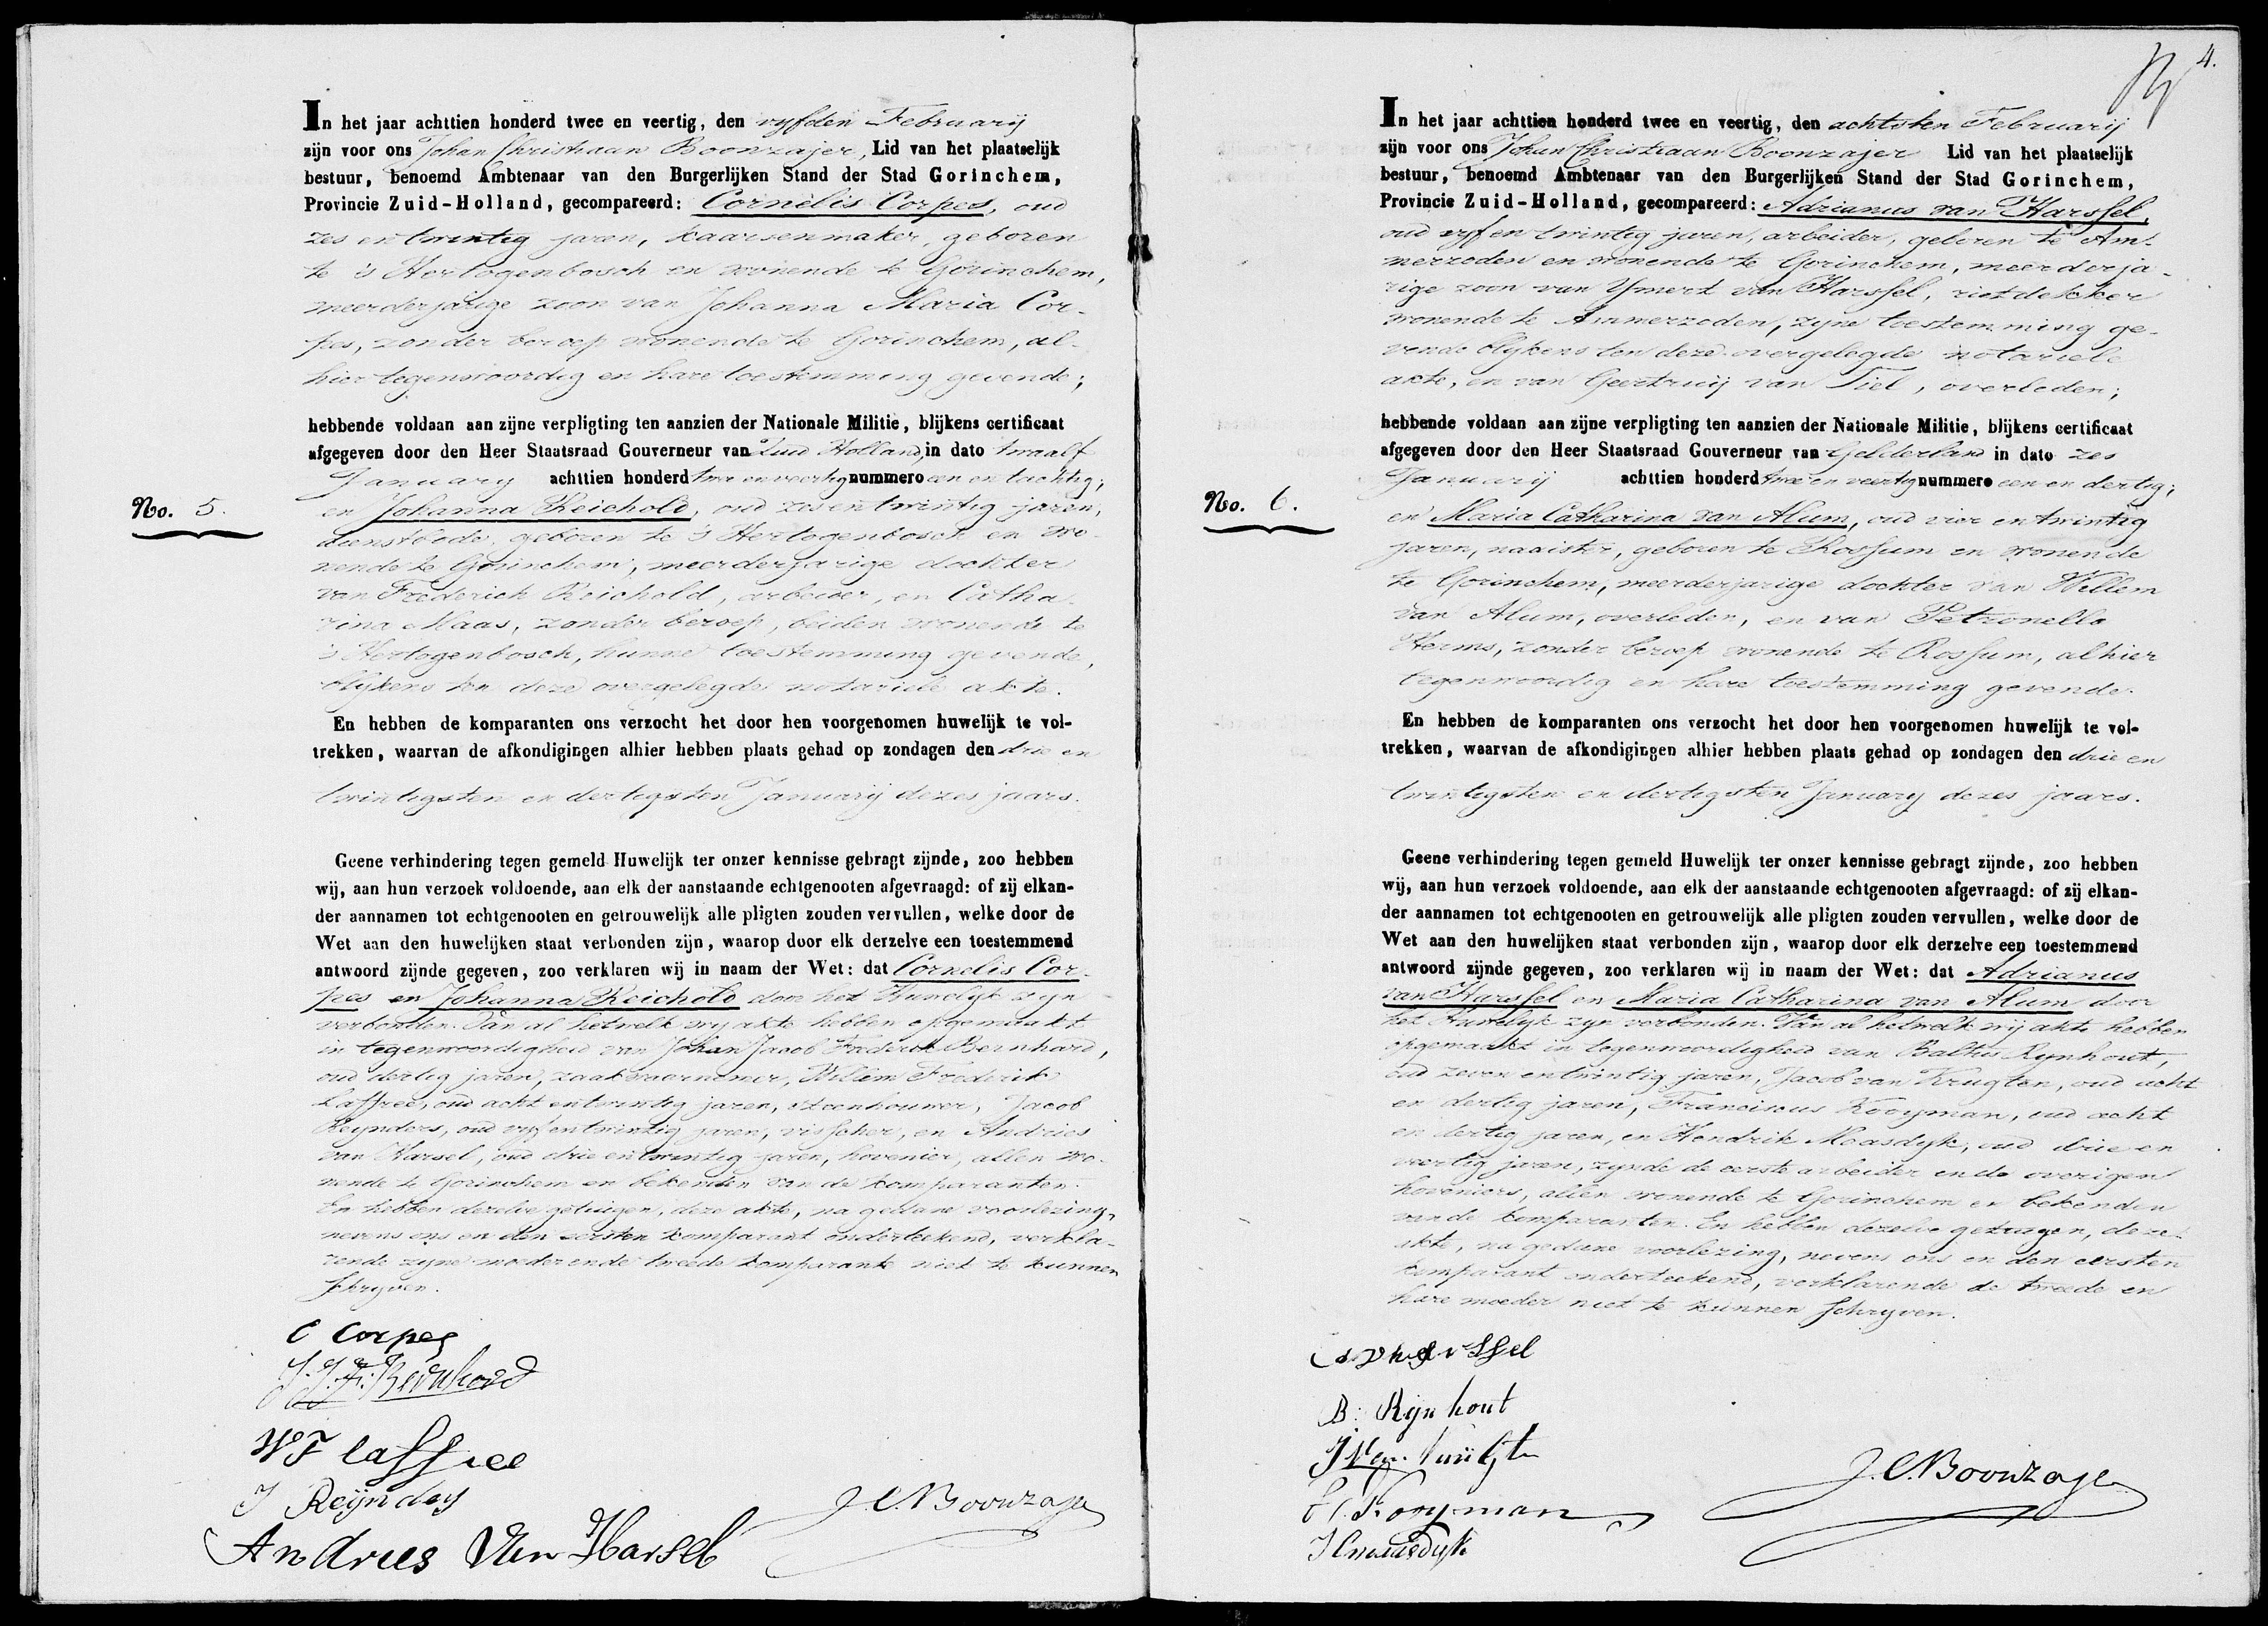 In het jaar achttien honderd twee en veertig, den vyfden Februarij
zijn voor ons Johan Christiaan Boonzajer, Lid van het plaatselijk
bestuur, benoemd Ambtenaar van den Burgerlijken Stand der Stad Gorinchem,
Provincie Zuid-Holland, gecompareerd: Cornelis Corpes, oud
zes en twintig jaren, kaarsenmaker, geboren
te 's Hertogenbosch en wonende te Gorinchem,
meerderjarige zoon van Johanna Maria Cor-
pes, zonder beroep wonende te Gorinchem, al-
hier tegenwoordig en hare toestemming gevende;
hebbende voldaan aan zijne verpligting ten aanzien der Nationale Militie, blijkens certificaat
afgegeven door den Heer Staatsraad Gouverneur van Zuid Holland, in dato twaalf
January achttien honderd twee en veertig nummero een en tachtig;
No. 5.
en Johanna Reichold, oud zes en twintig jaren,
dienstbode, geboren te 's Hertogenbosch en wo-
nende te Gorinchem, meerderjarige dochter
van Frederich Reichold, arbeider, en Catha-
rina Maas, zonder beroep, beiden wonende te
's Hertogenbosch, hunne toestemming gevende,
blykens ten deze overgelegde notariele akte.
En hebben de komparanten ons verzocht het door hen voorgenomen huwelijk te vol-
trekken, waarvan de afkondigingen alhier hebben plaats gehad op zondagen den drie en
twintigsten en dertigsten Januarij dezes jaars.
Geene verhindering tegen gemeld Huwelijk ter onzer kennisse gebragt zijnde, zoo hebben
wij, aan hun verzoek voldoende, aan elk der aanstaande echtgenooten afgevraagd: of zij elkan-
der aannamen tot echtgenooten en getrouwelijk alle pligten zouden vervullen, welke door de
Wet aan den huwelijken staat verbonden zijn, waarop door elk derzelve een toestemmend
antwoord zijnde gegeven, zoo verklaren wij in naam der Wet: dat Cornelis Cor-
pes en Johanna Reichold door het Huwelyk zyn
verbonden. Van al hetwelk wy akte hebben opgemaakt
in tegenwoordigheid van Johan Jacob Frederik Bernhard,
oud dertig jaren, zaakwaarnemer, Willem Frederik
Laffree, oud acht en twintig jaren, steenhouwer, Jacob
Reynders, oud vyf en twintig jaren, visscher, en Andries
van Harsel, oud drie en twintig jaren, hovenier, allen wo-
nende te Gorinchem en bekenden van de komparanten.
En hebben dezelve getuigen, deze akte, na gedane voorlezing,
nevens ons en den eersten komparant onderteekend, verkla-
rende zyne moeder en de tweede komparante niet te kunnen
schryven.
C Corpes
J. J. F. Bernhard
WF Laffree
J Reijnders
Andries Van Harsel
J. C. Boonzajer
4.
In het jaar achttien honderd twee en veertig, den achtsten Februarij
zijn voor ons Johan Christiaan Boonzajer Lid van het plaatselijk
bestuur, benoemd Ambtenaar van den Burgerlijken Stand der Stad Gorinchem,
Provincie Zuid-Holland, gecompareerd: Adrianus van Harssel,
oud vyf en twintig jaren, arbeider, geboren te Am-
merzoden en wonende te Gorinchem, meerderja-
rige zoon van Ymert van Harssel, rietdekker
wonende te Ammerzoden, zyne toestemming ge-
vende blykens ten deze overgelegde notariele
akte, en van Geertruij van Tiel, overleden;
hebbende voldaan aan zijne verpligting ten aanzien der Nationale Militie, blijkens certificaat
afgegeven door den Heer Staatsraad Gouverneur van Gelderland in dato zes
Januarij achttien honderd twee en veertig nummero een en dertig;
No. 6.
en Maria Catharina van Alum, oud vier en twintig
jaren, naaister, geboren te Rossum en wonende
te Gorinchem, meerderjarige dochter van Willem
van Alum, overleden, en van Petronella
Herms, zonder beroep wonende te Rossum, alhier
tegenwoordig en hare toestemming gevende.
En hebben de komparanten ons verzocht het door hen voorgenomen huwelijk te vol-
trekken, waarvan de afkondigingen alhier hebben plaats gehad op zondagen den drie en
twintigsten en dertigsten January dezes jaars.
Geene verhindering tegen gemeld Huwelijk ter onzer kennisse gebragt zijnde, zoo hebben
wij, aan hun verzoek voldoende, aan elk der aanstaande echtgenooten afgevraagd: of zij elkan-
der aannamen tot echtgenooten en getrouwelijk alle pligten zouden vervullen, welke door de
Wet aan den huwelijken staat verbonden zijn, waarop door elk derzelve een toestemmend
antwoord zijnde gegeven, zoo verklaren wij in naam der Wet: dat Adrianus
van Harssel en Maria Catharina van Alum door
het Huwelyk zyn verbonden. Van al hetwelk wij akte hebben
opgemaakt in tegenwoordigheid van Baltus Rynhout,
oud zeven en twintig jaren, Jacob van Krugten, oud acht
en dertig jaren, Franciscus Kooyman, oud acht
en dertig jaren, en Hendrik Maasdyk, oud drie en
veertig jaren, zynde de eerste arbeider en de overigen
hoveniers, allen wonende te Gorinchem en bekenden
van de komparanten. En hebben dezelve getuigen, deze
akte, na gedane voorlezing, nevens ons en den eersten
komparant onderteekend, verklarende de tweede en
hare moeder niet te kunnen schryven.
B: Rijnhout
Kooyman
H maasdyk
J. C. Boonzajer